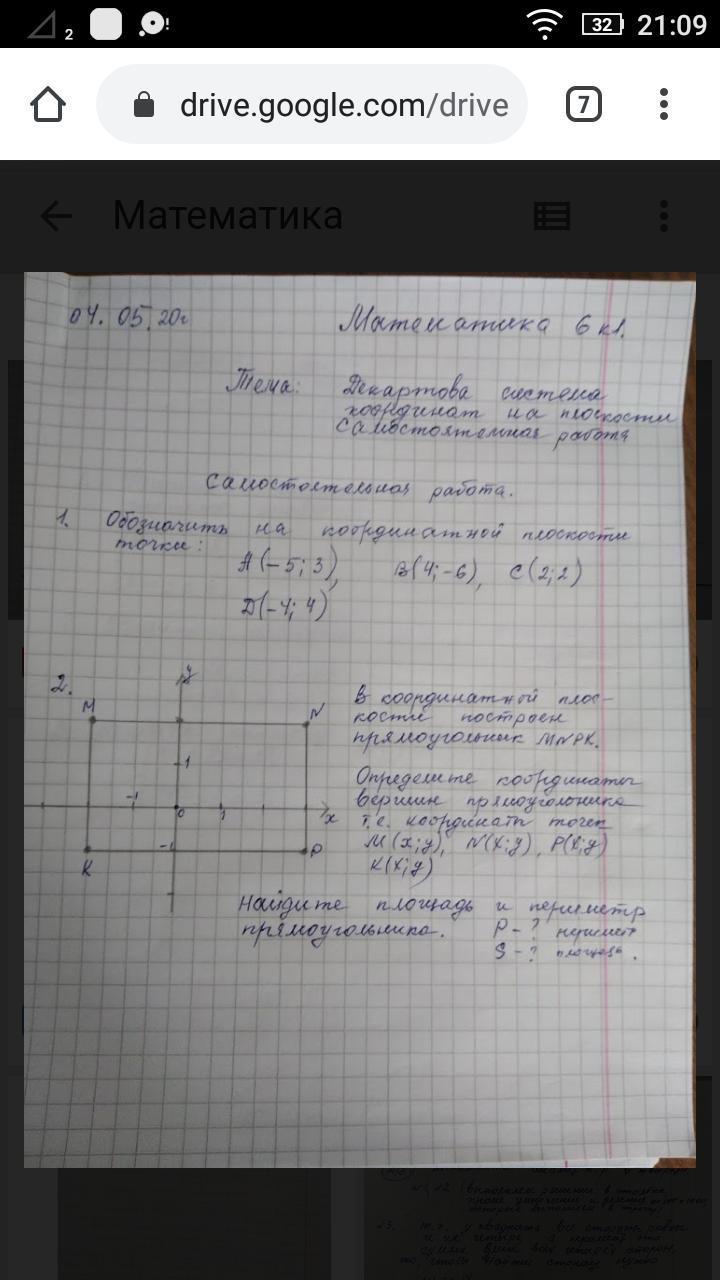 2
32
21:09
drive.google.com/drive
7
Математика
04. 05. 20г
Математика 6 кл.
Тема: Декартова система
координат на плоскости
Самостоятельная работа
Самостоятельная работа.
1. Обозначить на координатной плоскости
точки:
A(-5; 3), B(4; -6), C(2; 2)
D(-4; 4)
2.
y
M
N
1
-1
0
1
x
-1
K
P
В координатной плос-
кости построен
прямоугольник MNPK.
Определите координаты
вершин прямоугольника
т.е. координаты точек
M(x; y), N(x; y), P(x; y)
K(x; y)
Найдите площадь и периметр
прямоугольника.
P - ? периметр
S - ? площадь.